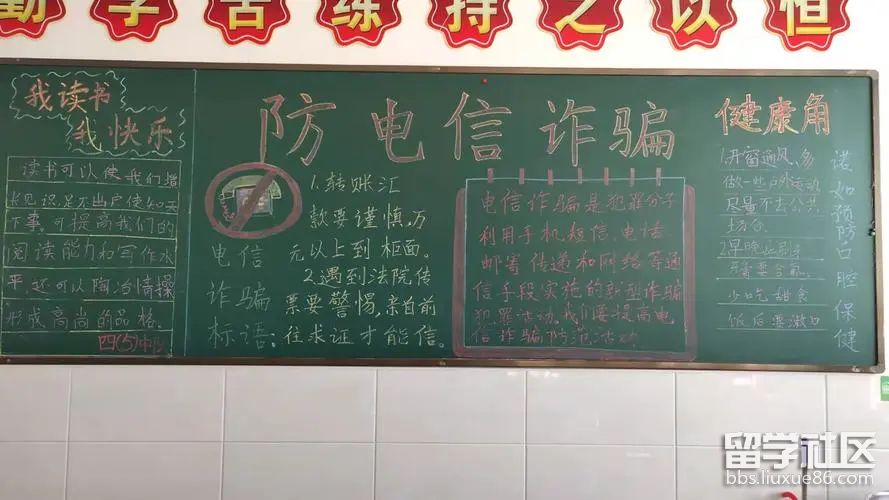 勤学苦练持之以恒
我读书
我快乐
读书可以使我们增
长见识,足不出户使知天
下事。可提高我们的
阅读能力和写作水
平,还可以陶冶情操
形成高尚的品格。
四(5)中队
防电信诈骗
电信
诈骗
标语:
1.转账汇
款要谨慎,万
元以上到柜面。
2.遇到法院传
票要警惕,亲自前
往求证才能信。
电信诈骗是犯罪分子
利用手机短信、电话、
邮寄传递和网络等通
信手段实施的新型诈骗
犯罪活动。我们要提高电
信诈骗防范活动
健康角
1.开窗通风,多
做一些户外运动
尽量不去公共
场合。
2.早晚
少吃甜食
饭后要漱口
诺如预防口腔保健
留学社区
bbs.liuxue86.com